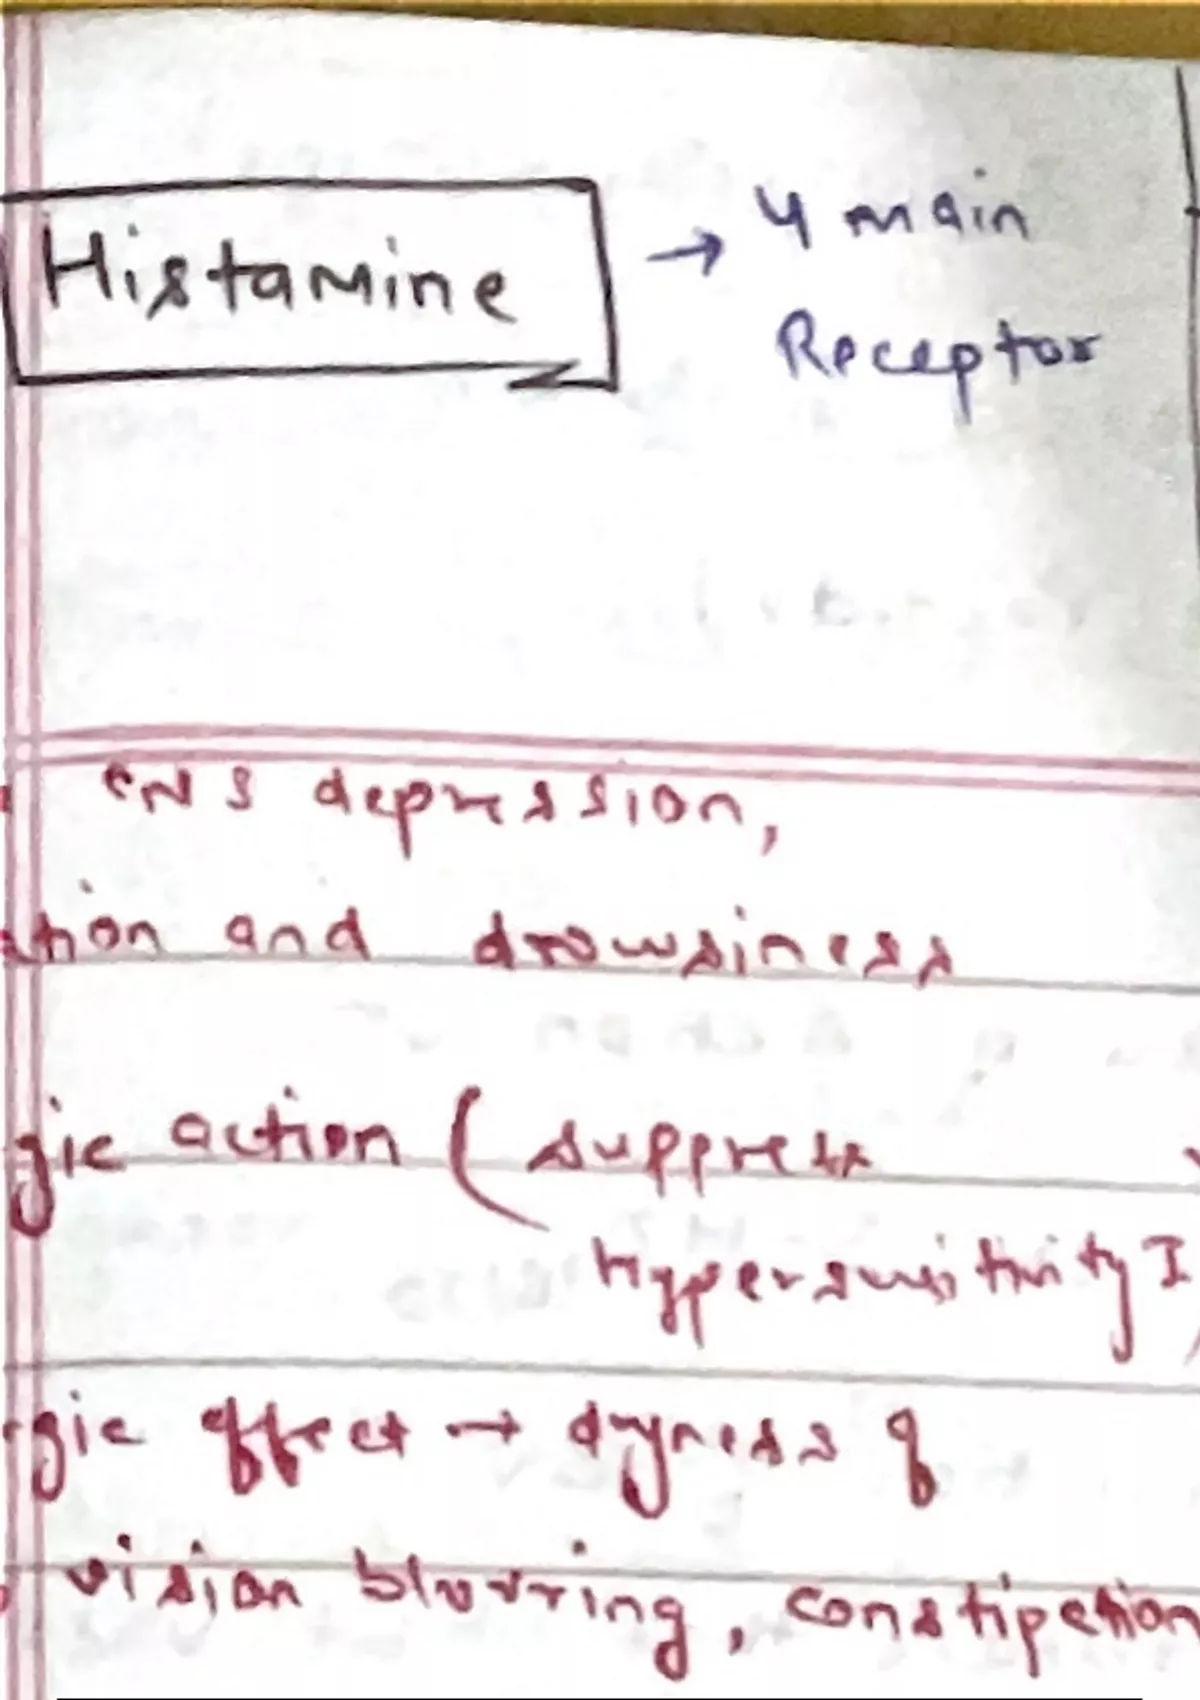 Histamine → 4 main
Receptor
CNS depression,
tion and drowsiness
gic action ( suppress
Hypersensitivity I
gic effect → dryness of
vision blurring, constipation